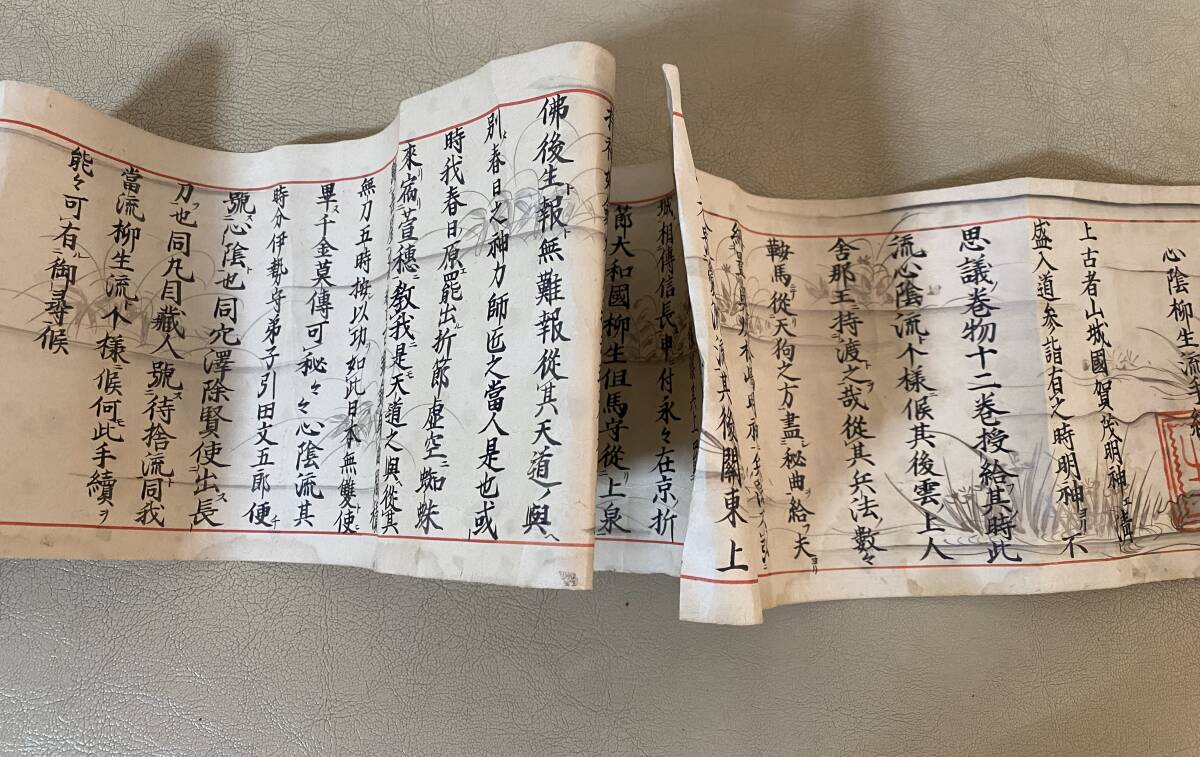 心陰柳生流
上古者山城國賀茂明神ニ清
盛入道參詣有之時明神ヨリ不
思議ノ巻物十二巻授給其時此
流心陰流ト个樣ニ候其後雲ノ上人
舍那王ニ持渡之哉從其兵法ノ數々
鞍馬ニ從天狗之方盡ニ秘曲ヲ給フ夫ヨリ
流其後關東上
城相傳信長申付永々在京ノ折
節大和國柳生但馬守從上泉
佛後生ト報ト無難報從其天道ノ與ヘ
別春日之神力師匠之當人是也或
時我春日原罷出折節虛空ニ蜘蛛
來リ宿萱穗ニ教我ニ是天道之與從其
無刀五時按以功如此日本無雙使
畢千金莫傳可秘々々心陰流其
時分伊勢守弟子引田文五郎便チ
號心陰ト也同穴澤除賢使出ス長
刀ヲ也同丸目藏人號ス待捨流ト同我
當流柳生流个樣ニ候何モ此手續ヲ
能々可有御尋候